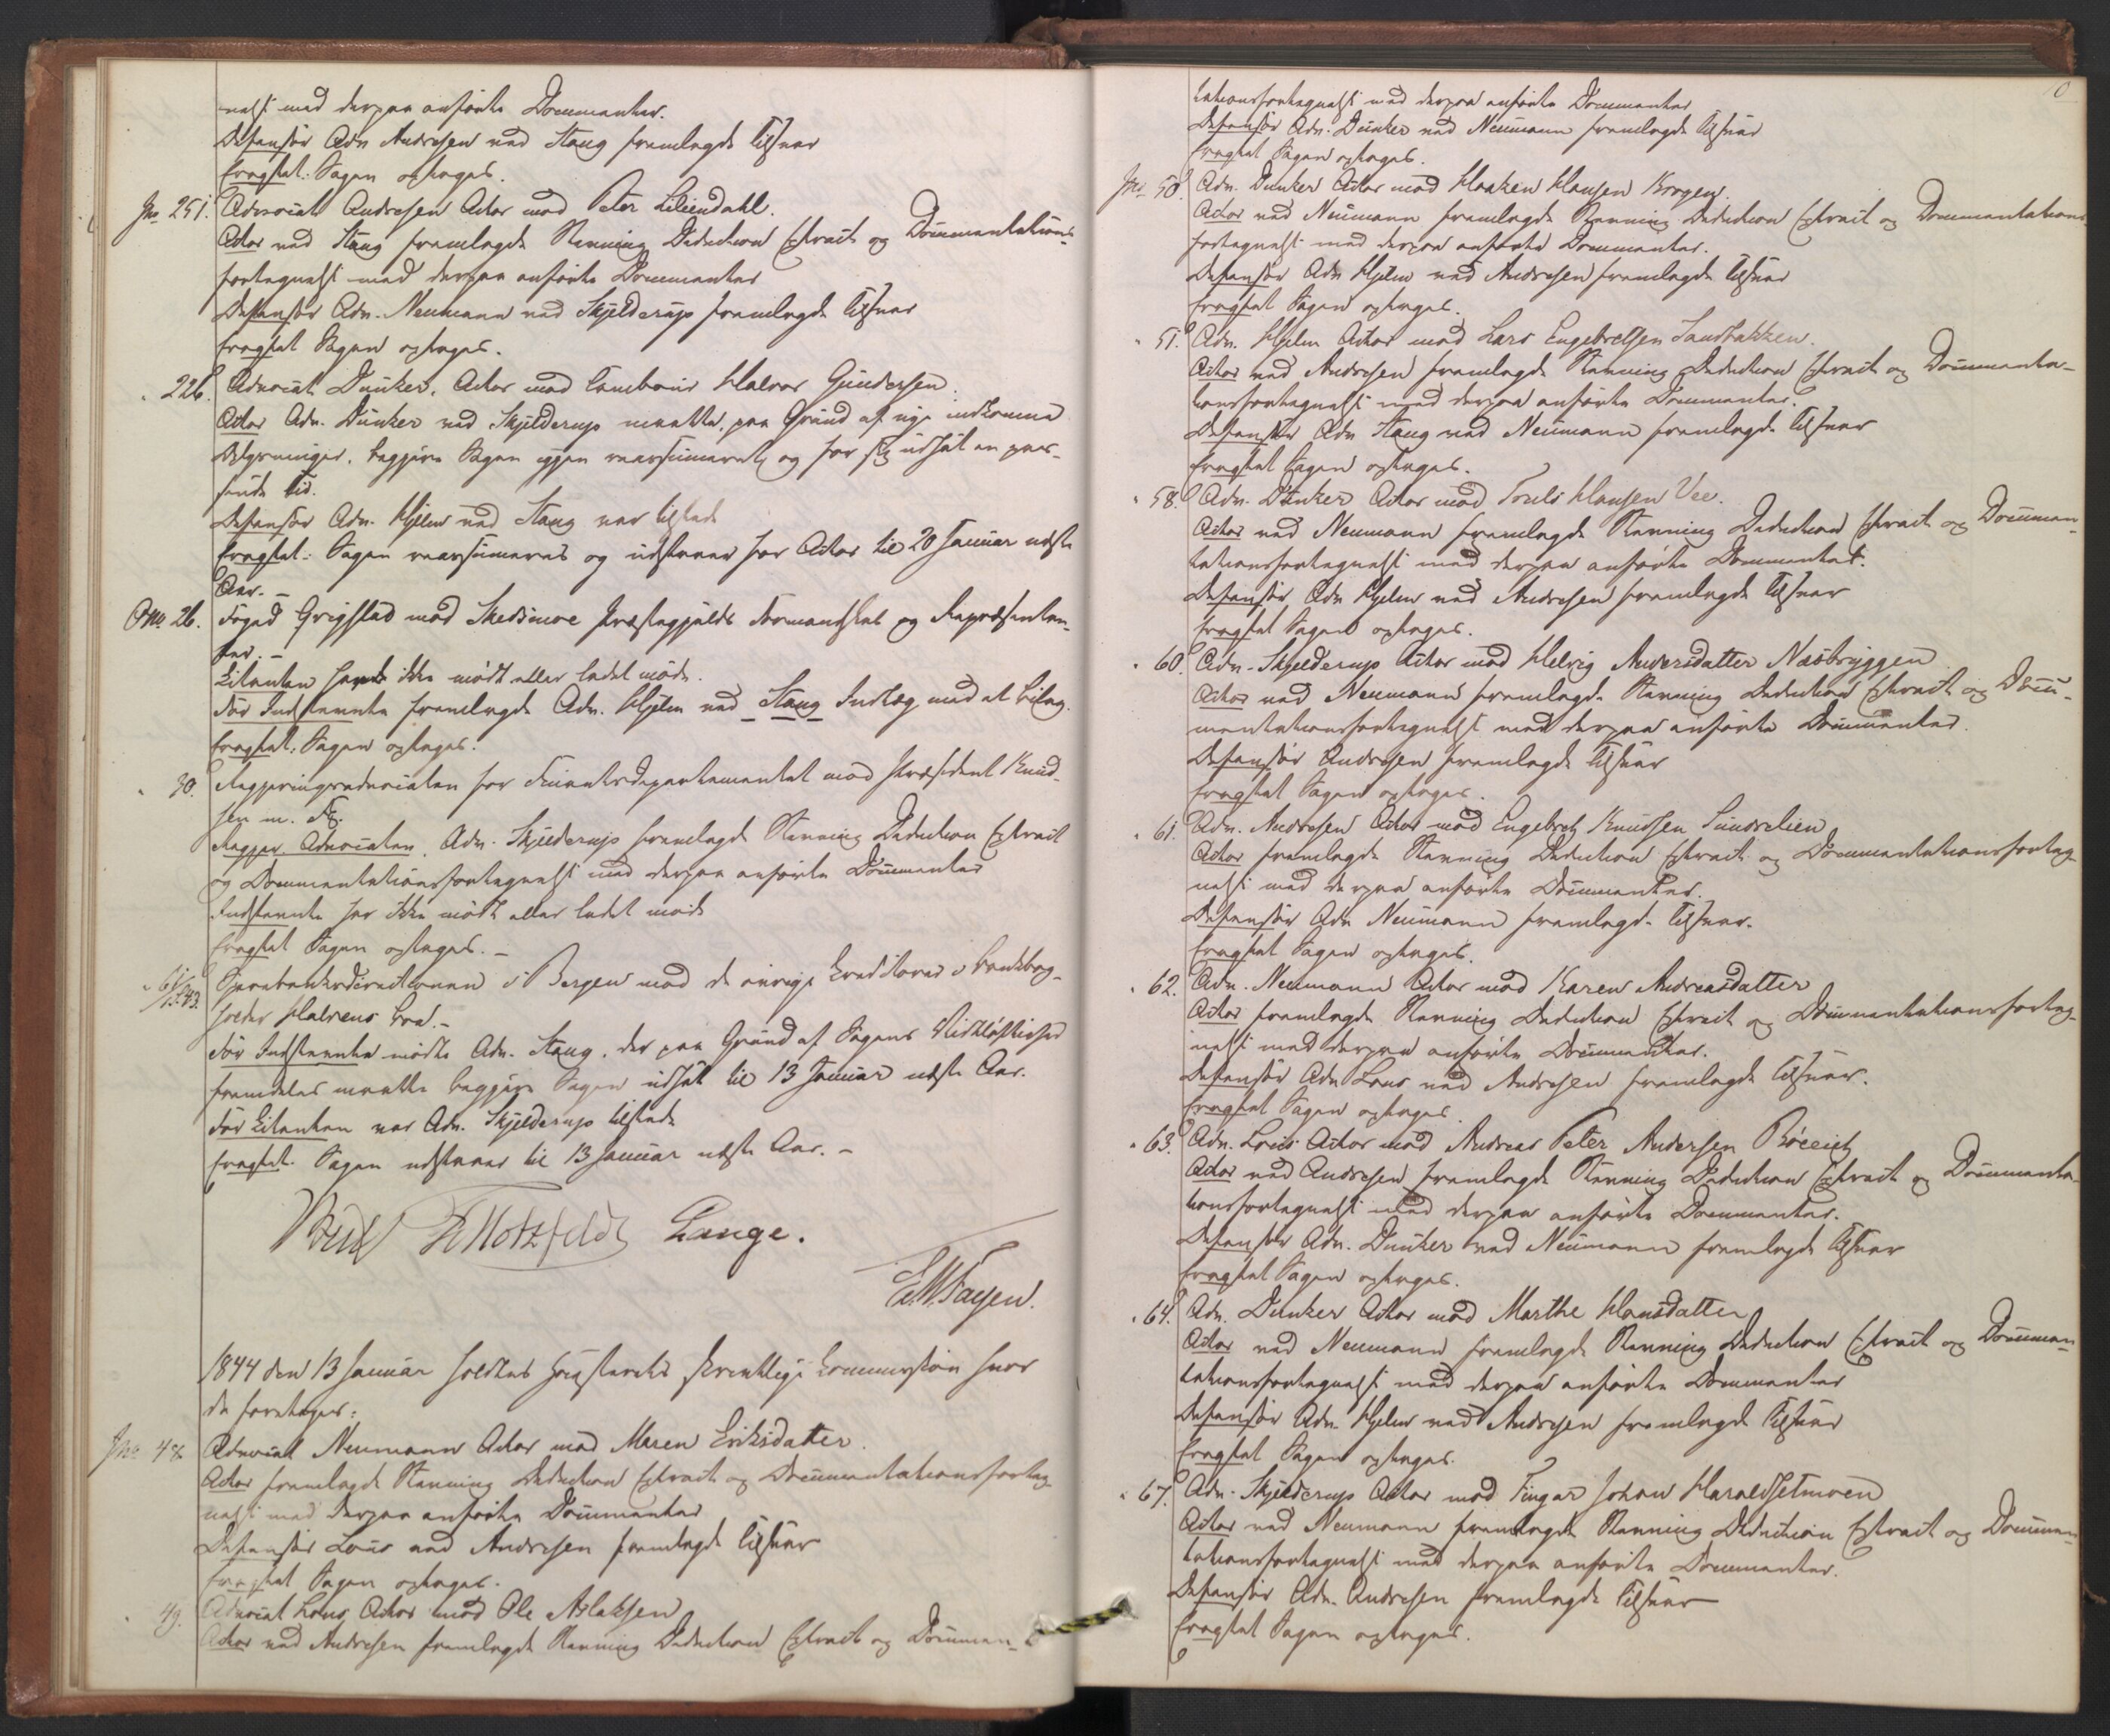 nelse med derpaa anførte Documenter.
Defensor Adv Andresen ved Stang fremlagde Tilsvar
Eragtet: Sagen optages.
Jno 251. Advocat Andresen Actor mod Peter Liliendahl.
Actor ved Stang fremlagde Stævning Deduction Extract og Documentations-
fortegnelse med derpaa anførte Documenter
Defensor Adv. Neumann ved Skjelderup fremlagde Tilsvar
Eragtet Sagen optages.
" 226. Advocat Dunker, Actor mod Tambour Halvor Gundersen.
Actor Adv. Dunker ved Skjelderup maatte, paa Grund af nye indkomne
Oplysninger, begjære Sagen igjen reassumeret og for sig udsat en pas-
sende Tid.
Defensor Adv. Hjelm ved Stang var tilstede
Eragtet: Sagen reassumeres og udstaaer for Actor til 20 Januar næste
Aar. -
Ono. 26. Foged Grigstad mod Skedsmoe Præstegjælds Formandskab og Repræsentan-
ter. -
Citanten havde ikke mødt eller ladet møde.
For Indstevnte fremlagde Adv. Hjelm ved Stang Indlæg med et Bilag.
Eragtet: Sagen optages.
" 30. Regjeringsadvocaten for Finantsdepartementet mod Præsident Knud-
sen m. Fl.
Regjer. Advocaten, Adv. Skjelderup fremlagde Stævning Deduction Extract
og Documentationsfortegnelse med derpaa anførte Documenter
Indstevnte har ikke mødt eller ladet møde
Eragtet Sagen optages. -
" 61/1843. Sparebankdirectionen i Bergen mod de øvrige Creditorer i Bankbog-
holder Halvens Bod. -
For Indstevnte mødte Adv. Stang, der paa Grund af Sagens Vidtløftighed
fremdeles maatte begjære Sagen udsat til 13 Januar næste Aar.
For Citanten var Adv. Skjelderup tilstede
Eragtet. Sagen udstaaer til 13 Januar næste Aar. -
Motzfeldt Lange.
1844 den 13 Januar holdtes Høiesterets skriftlige Commission hvor
da foretoges:
Jno 48 Advocat Neumann Actor mod Maren Eriksdatter.
Actor fremlagde Stævning Deduction Extract og Documentationsforteg-
nelse med derpaa anførte Documenter
Defensor Lous ved Andresen fremlagde Tilsvar
Eragtet Sagen optages.
" 49. Advocat Lous Actor mod Ole Aslaksen
Actor ved Andresen fremlagde Stævning Deduction Extract og Documen-
tationsfortegnelse med derpaa anførte Documenter
Defensor Adv. Dunker ved Neumann fremlagde Tilsvar
Eragtet Sagen optages.
Jno 50. Adv. Dunker Actor mod Haaken Hansen Krogen.
Actor ved Neumann fremlagde Stævning Deduction Extract og Documentations-
fortegnelse med derpaa anførte Documenter.
Defensor Adv Hjelm ved Andresen fremlagde Tilsvar
Eragtet Sagen optages.
" 51. Adv. Hjelm Actor mod Lars Engebretsen Sandbakken.
Actor ved Andresen fremlagde Stævning Deduction Extract og Documenta-
tionsfortegnelse med derpaa anførte Documenter.
Defensor Adv Stang ved Neumann fremlagde Tilsvar
Eragtet Sagen optages.
" 58. Adv. Dunker Actor mod Truls Hansen Vee.
Actor ved Neumann fremlagde Stævning Deduction Extract og Documen-
tationsfortegnelse med derpaa anførte Documenter.
Defensor Adv Hjelm ved Andresen fremlagde Tilsvar
Eragtet Sagen optages.
" 60. Adv. Skjelderup Actor mod Helvig Andersdatter Næsbryggen
Actor ved Neumann fremlagde Stævning Deduction Extract og Docu-
mentationsfortegnelse med derpaa anførte Documenter.
Defensor Andresen fremlagde Tilsvar
Eragtet Sagen optages.
" 61. Adv. Andresen Actor mod Engebret Knudsen Sundrelien
Actor fremlagde Stævning Deduction Extract og Documentationsforteg-
nelse med derpaa anførte Documenter.
Defensor Adv Neumann fremlagde Tilsvar.
Eragtet Sagen optages.
" 62. Adv. Neumann Actor mod Karen Andreasdatter
Actor fremlagde Stævning Deduction Extract og Documentationsforteg-
nelse med derpaa anførte Documenter.
Defensor Adv Lous ved Andresen fremlagde Tilsvar.
Eragtet Sagen optages.
" 63. Adv. Lous Actor mod Andreas Peter Andersen
Actor ved Andresen fremlagde Stævning Deduction Extract og Documenta-
tionsfortegnelse med derpaa anførte Documenter.
Defensor Adv. Dunker ved Neumann fremlagde Tilsvar
Eragtet Sagen optages.
" 64. Adv. Dunker Actor mod Marthe Hansdatter
Actor ved Neumann fremlagde Stævning Deduction Extract og Documen-
tationsfortegnelse med derpaa anførte Documenter
Defensor Adv. Hjelm ved Andresen fremlagde Tilsvar
Eragtet Sagen optages.
" 67. Adv. Skjelderup Actor mod Fingar Johan Haraldsetmoen
Actor ved Neumann fremlagde Stævning Deduction Extract og Documen-
tationsfortegnelse med derpaa anførte Documenter.
Defensor Adv. Andresen fremlagde Tilsvar
Eragtet Sagen optages.